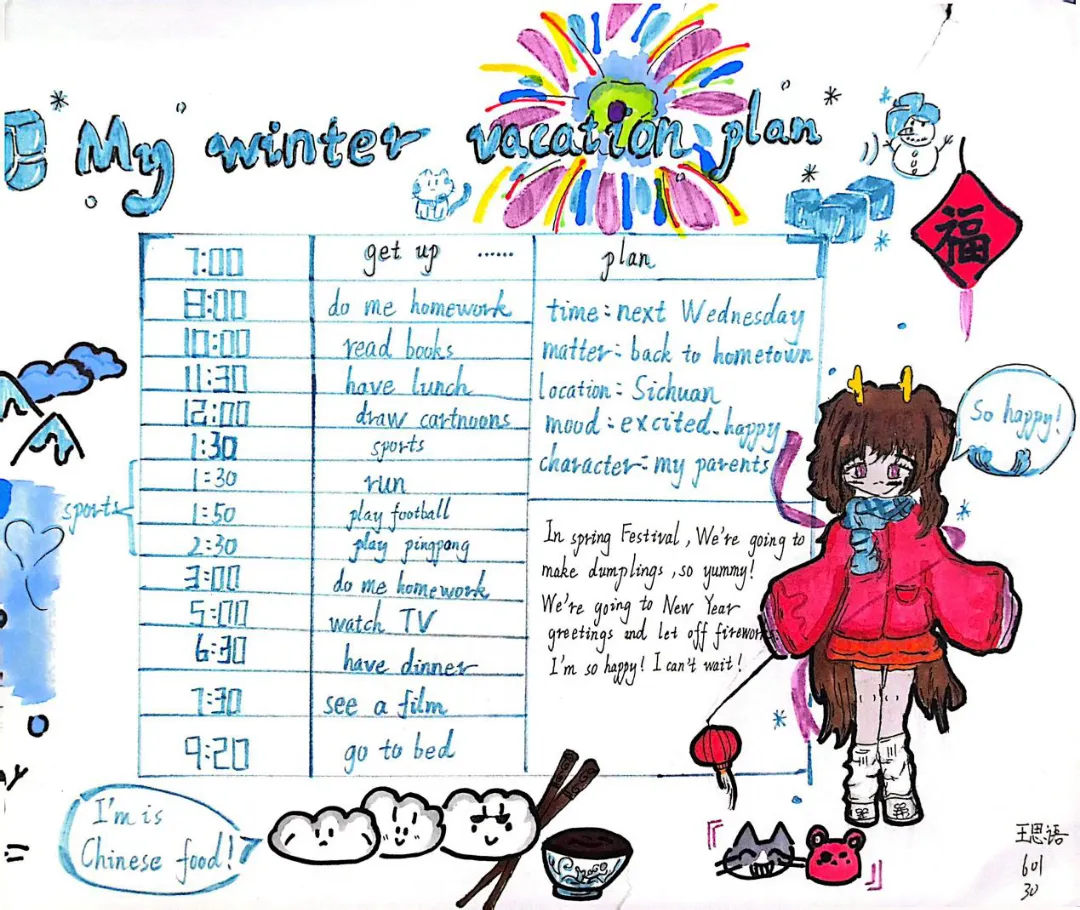 My winter vacation plan
福
7:00 get up ...... plan
8:00 do me homework
10:00 read books
11:30 have lunch
12:00 draw cartnoons
1:30 sports
sports
1:30 run
1:50 play football
2:30 play pingpang
3:00 do me homework
5:00 watch TV
6:30 have dinner
7:30 see a film
9:20 go to bed
time: next Wednesday
matter: back to hometown
location: Sichuan
mood: excited.happy
character: my parents
In spring Festival, We're going to
make dumplings, so yummy!
We're going to New Year
greetings and let off firework
I'm so happy! I can't wait!
So happy!
I'm is
Chinese food!
王思语
601
30